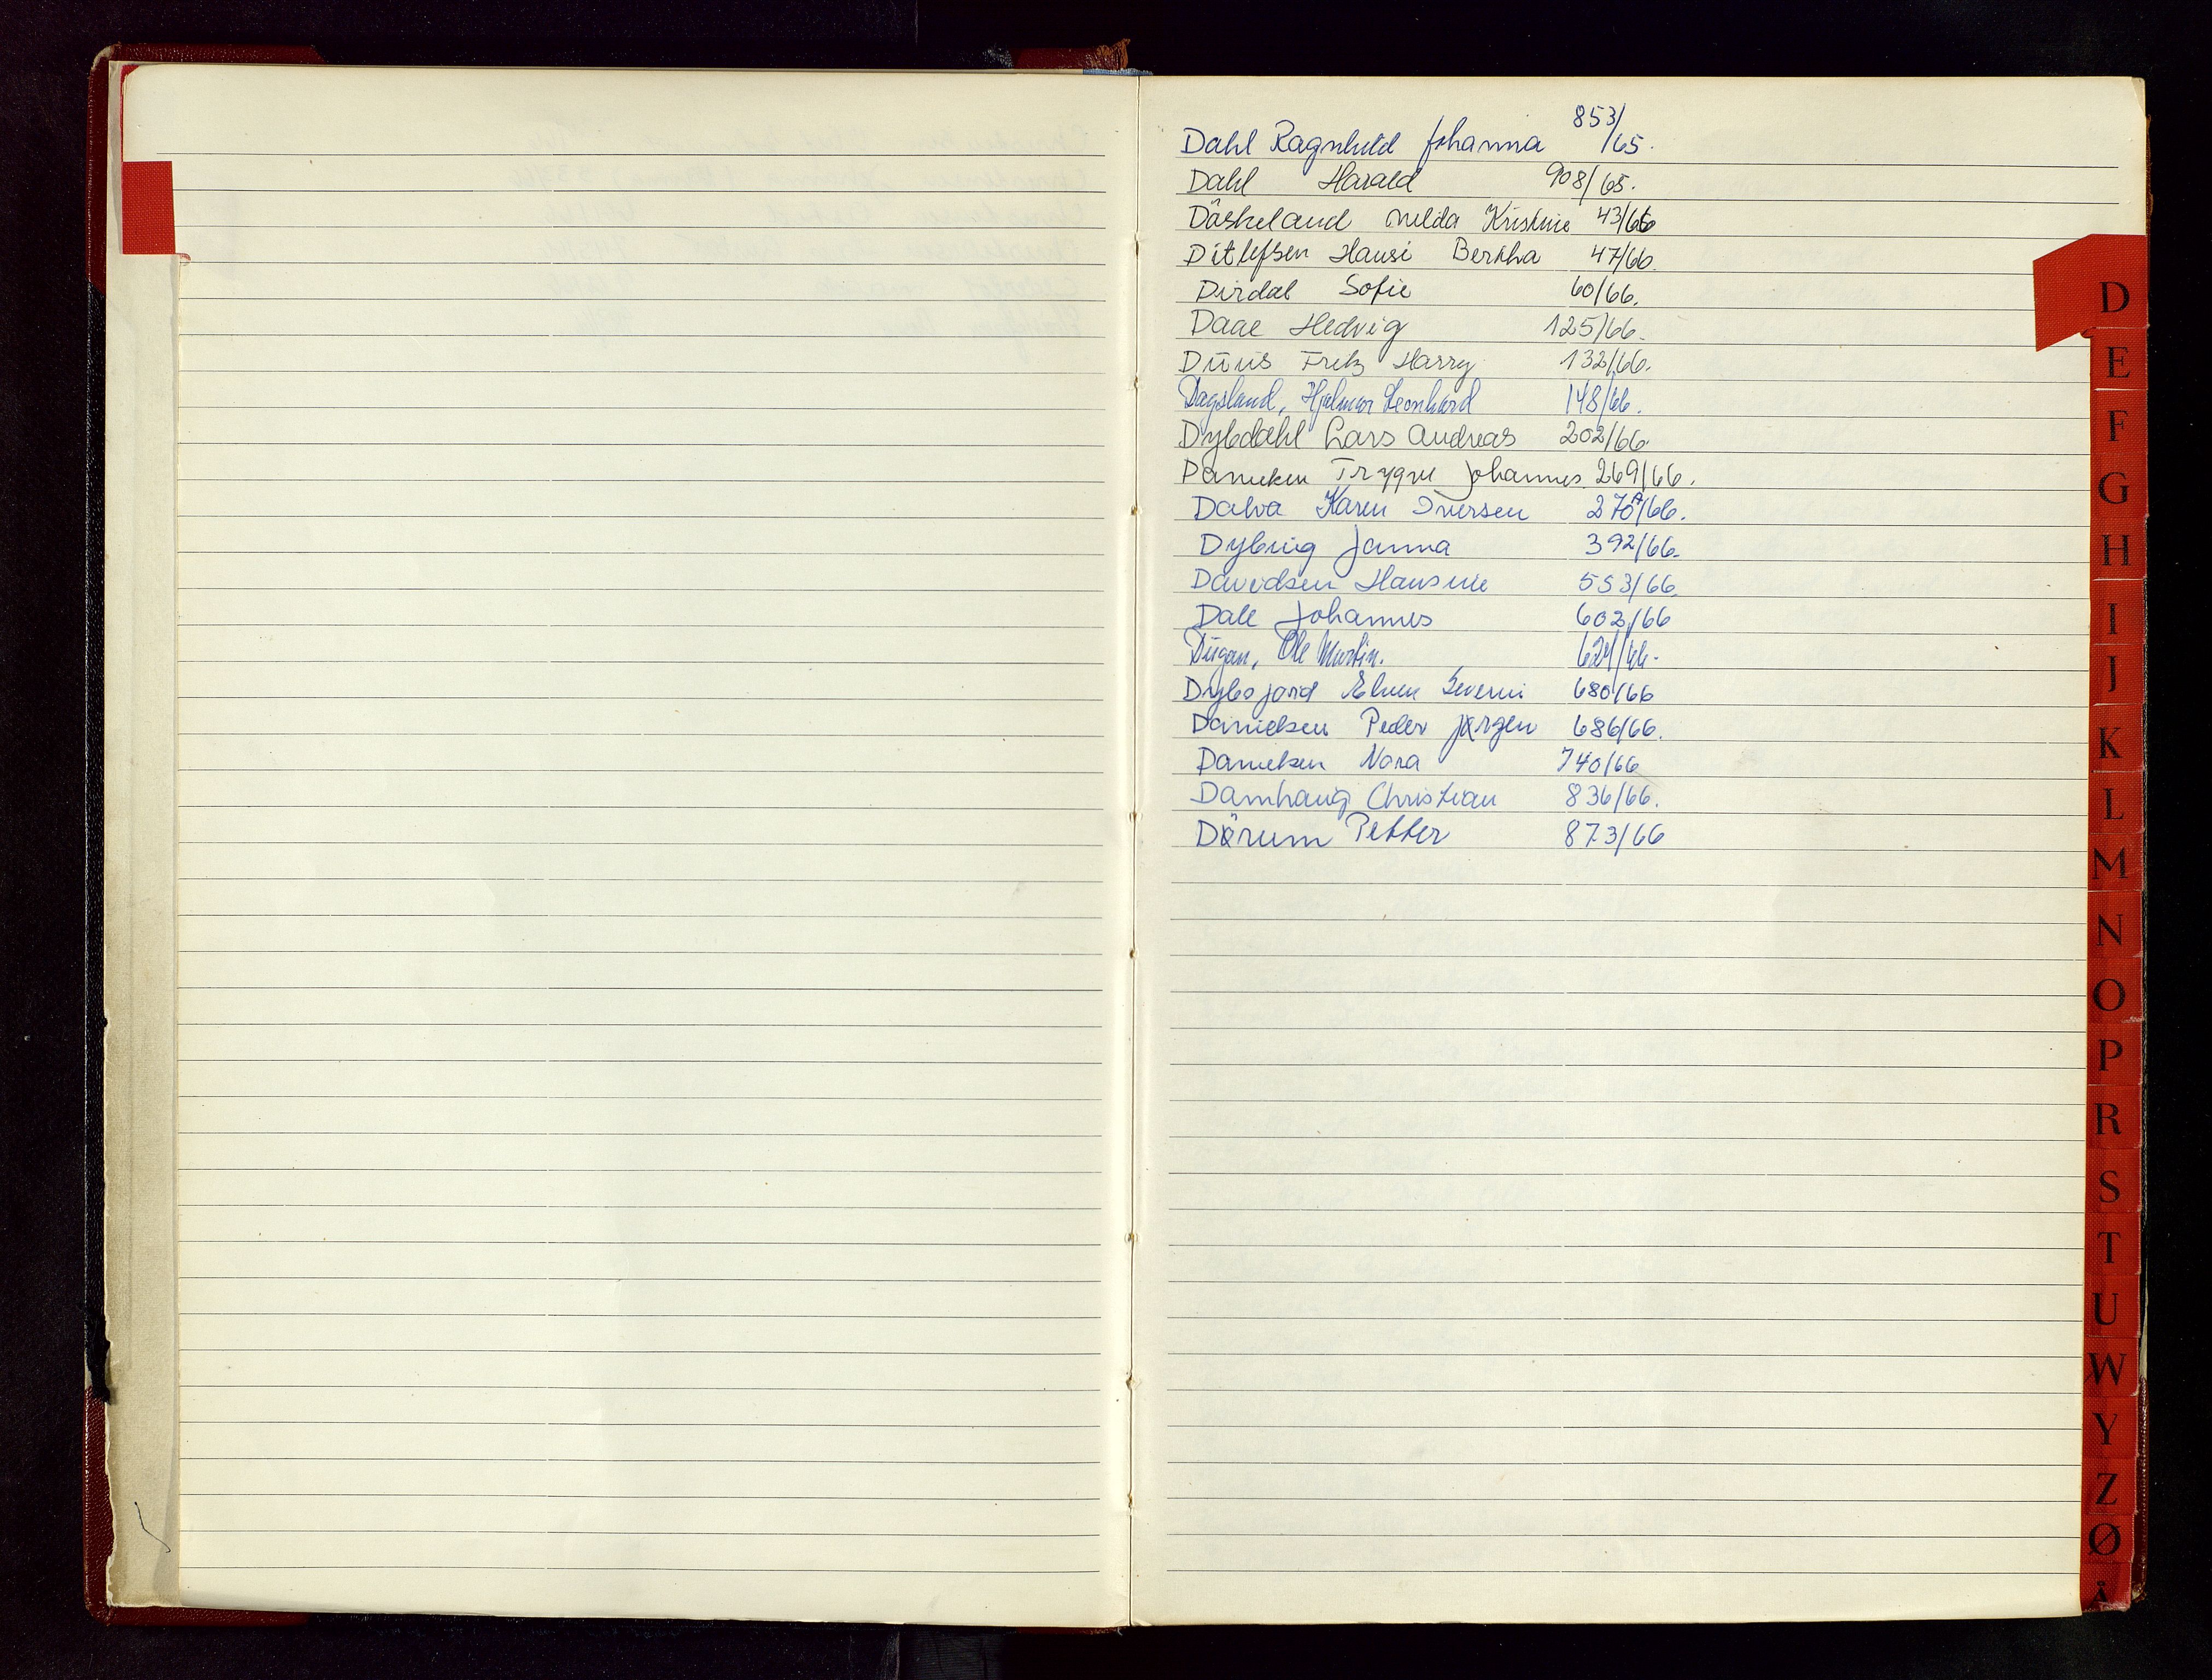 Dahl Ragnhild Johanna 853/65.
Dahl Harald 908/65.
Döskeland Melda Kristine 43/66
Ditlefsen Hansi Bertha 47/66.
Dirdal Sofie 60/66.
Daae Hedvig 125/66.
Duus Fritz Harry 132/66.
Dagsland, Hjalmar Leonhard 148/66.
Dybdahl Lars Andreas 202/66.
Danielsen Trygve Johannes 269/66.
Dalva Karen Iversen 270A/66.
Dybing Janna 392/66.
Davidsen Hansine 553/66.
Dale Johannes 602/66
Ole Martin. 624/66.
Severin 680/66
Danielsen Peder Jørgen 686/66.
Danielsen Nora 740/66
Damhaug Christian 836/66.
Dørum Petter 873/66
D
E
F
G
H
I
J
K
L
M
N
O
P
R
S
T
U
W
Y
Z
Ø
Å